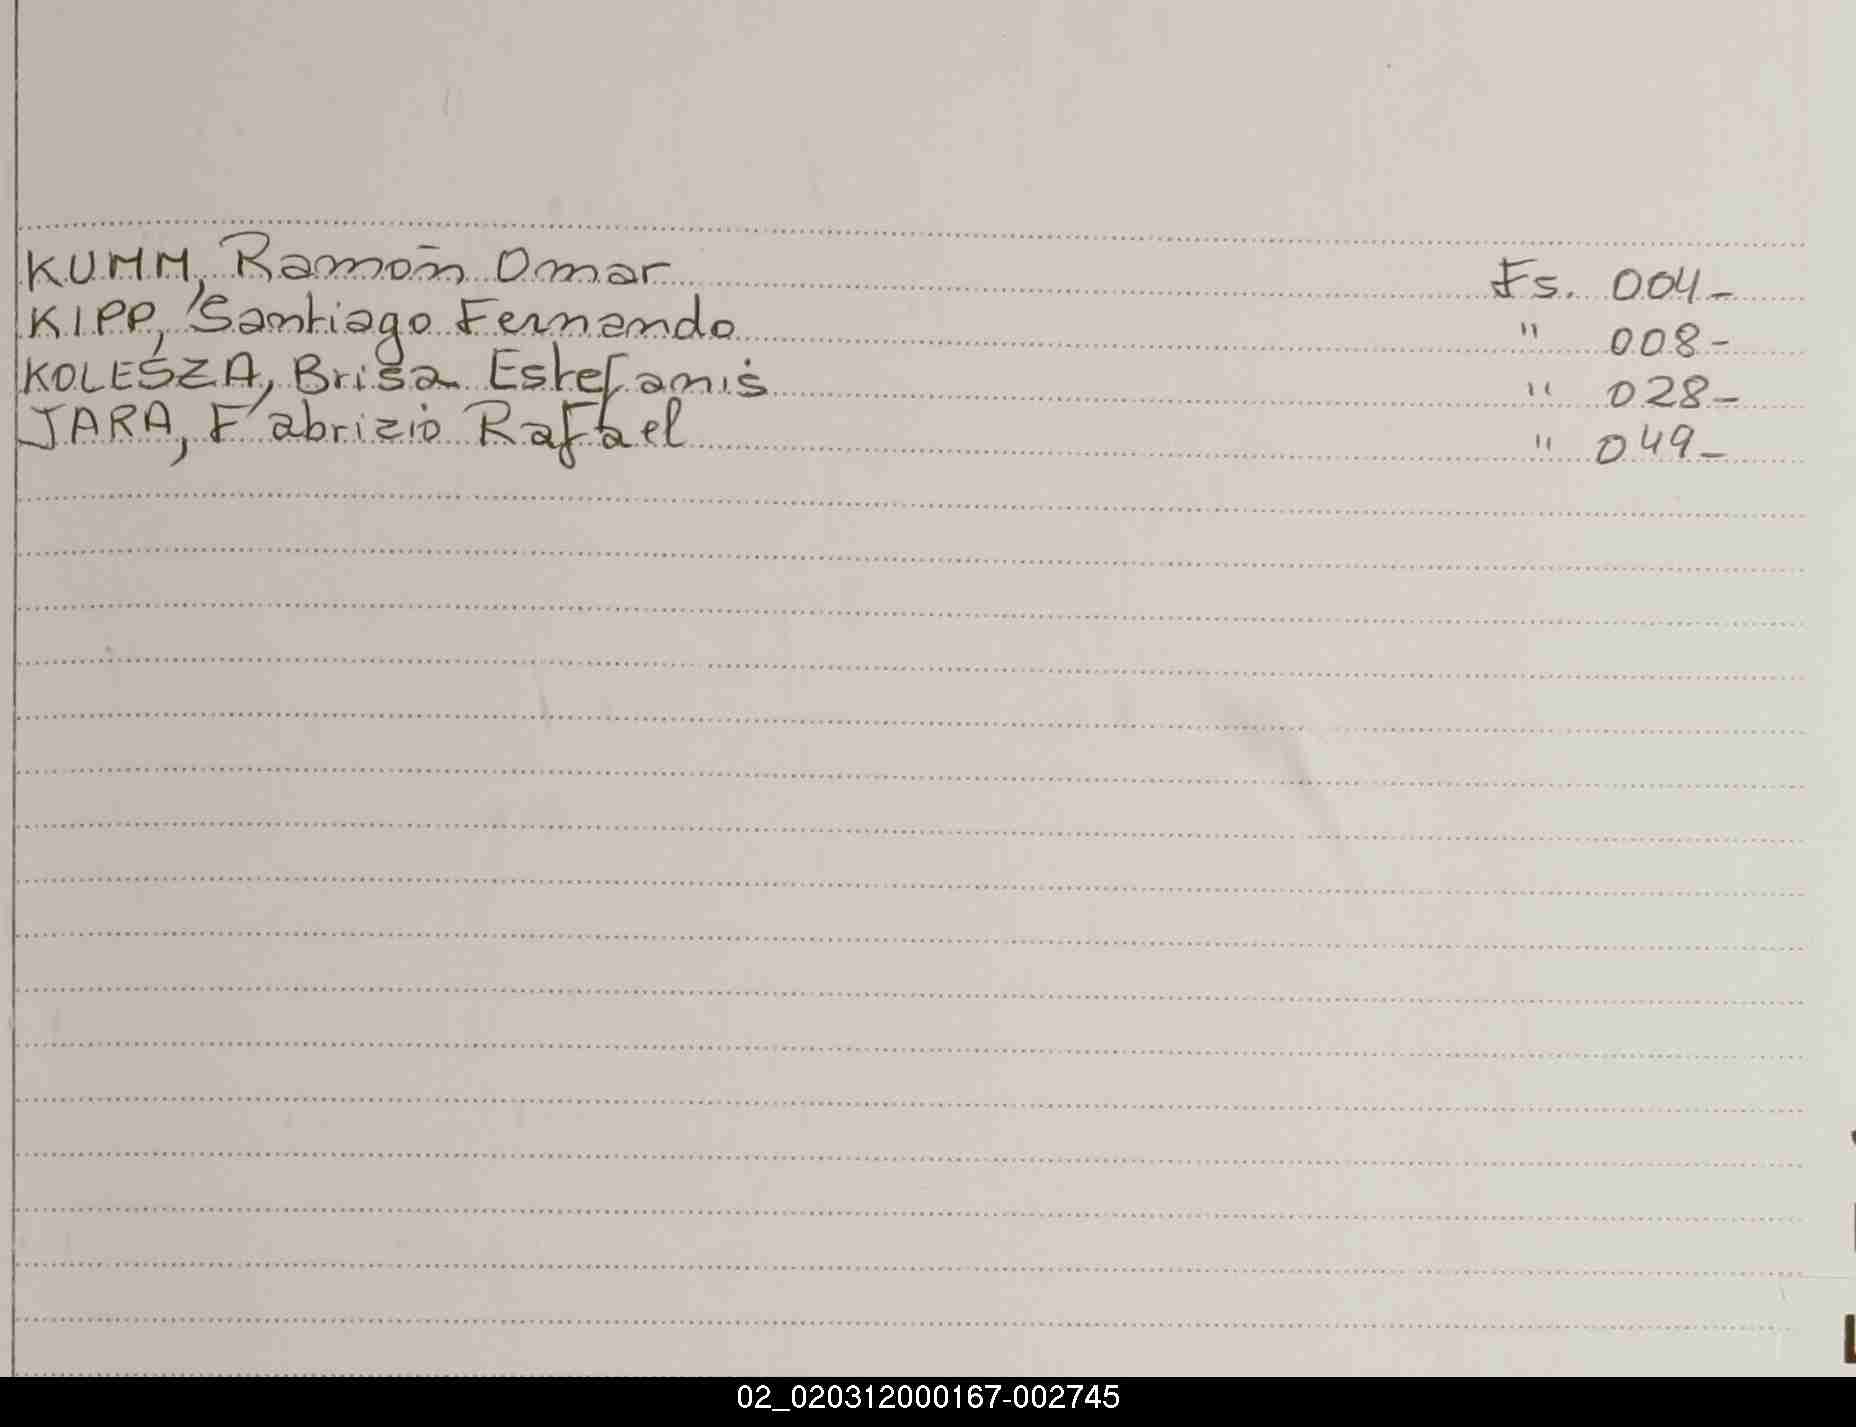 KUMM, Ramón Omar Fs. 004-
KIPP, Santiago Fernando " 008-
KOLESZA, Brisa Estefania " 028-
JARA, Fabrizio Rafael " 049-
02_020312000167-002745